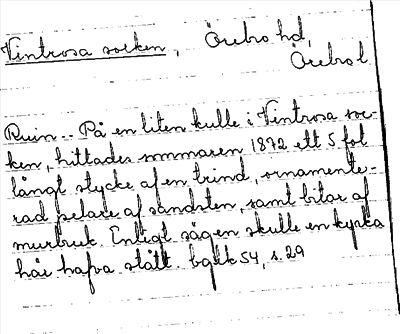 Vintrosa socken, Örebro hd,
Örebro l
Ruin.. På en liten kulle i Vintrosa soc-
ken, hittades sommaren 1872 ett 5 fot
långt stycke af en trind, ornamente-
rad pelare af sandsten, samt bitar af
murbruk. Enligt sägen skulle en kyrka
här hafva stått. s. 29